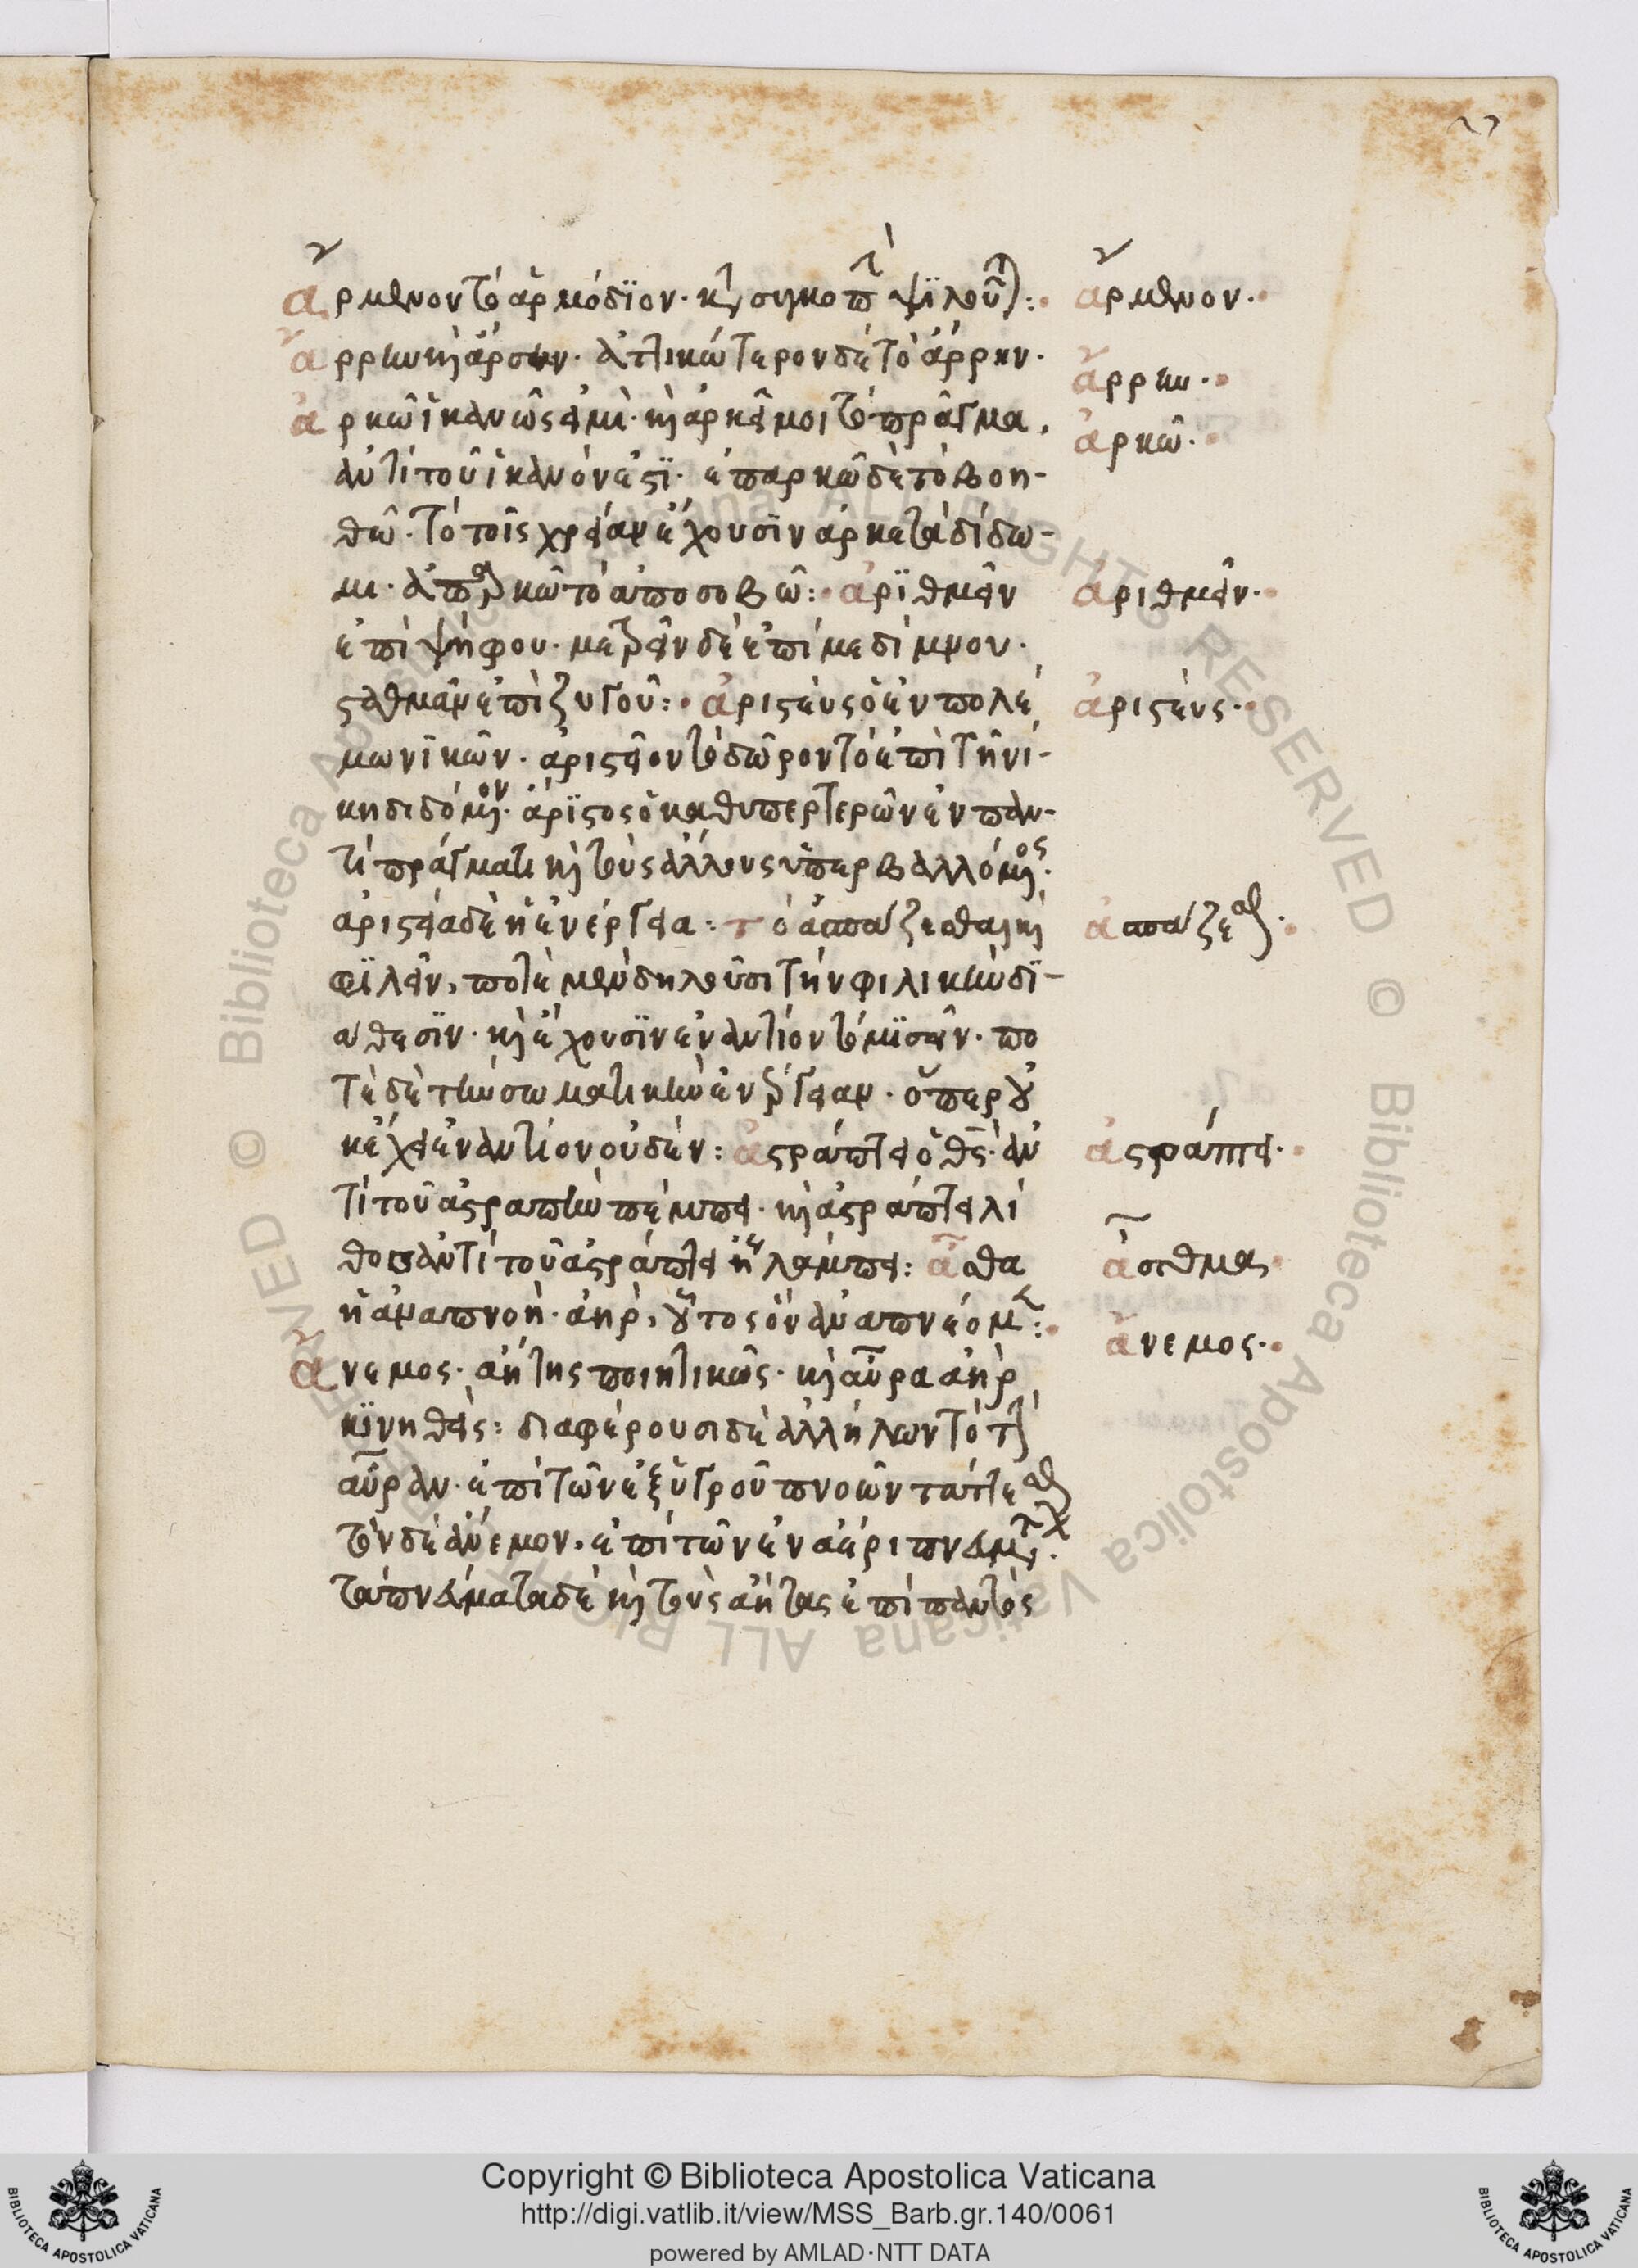 ἄρμενον τὸ ἁρμόδϊον· κ(αὶ) συγκοπτ(ι) ψϊλοῦτ(αι):
ἄρμενον·
ἄρρην κ(αὶ) ἄρσην· ἀττικώτερον δὲ τὸ ἄρρεν·
ἄρρην·
ἀρκῶ ἱκανῶς εἰμὶ· κ(αὶ) ἀρκεῖ μοι τὸ πρᾶγμα,
ἀρκῶ·
ἀντὶ τοῦ ἱκανόν ἐστϊ· ἐπαρκῶ δὲ τὸ βοη-
θῶ· τὸ τοῖς χρείαν ἔχουσϊν ἀρκετὰ δίδω-
μι· ἀπαρκῶ τὸ ἀποσοβῶ: ἀρϊθμεῖν
ἀριθμεῖν·
ἐπὶ ψήφου· μετρεῖν δὲ ἐπὶ μεδίμνου·
σταθμᾶν ἐπὶ ζυγοῦ: ἀριστεὺς ὁ ἐν πολέ
ἀριστεὺς·
μω νϊκῶν· ἀριστεῖον τὸ δῶρον τὸ ἐπὶ τῆ νί-
κη διδόμ(εν)ον· ἄρϊστος ὁ καθυπερτερῶν ἐν παν-
τὶ πράγματι κ(αὶ) τοὺς ἄλλους ὑπερβαλλόμ(εν)ος·
ἀριστεία δὲ ἡ ἐνέργεια: τὸ ἀσπάζεσθαι κ(αὶ)
ἀσπάζεσθ(αι)·
φϊλεῖν, ποτὲ μὲν δηλοῦσι τὴν φιλικὴν δϊ-
άθεσϊν· κ(αὶ) ἔχουσϊν ἐναντίον τὸ μϊσεῖν· πο
τὲ δὲ τὴν σωματικὴν ἐνέργειαν· ὅπερ οὐ
κ ἔχει ἐναντίον οὐδὲν: ἀστράπτει ὁ θ(εὸ)ς· ἀν
ἀστράπτει·
τὶ τοῦ ἀστραπὴν πέμπει· κ(αὶ) ἀστράπτει λί
θος ἀντὶ τοῦ ἀστράπτει ἢ λάμπει: ἆσθμα
ἆσθμα
ἡ ἀναπνοὴ· ἀὴρ, οὗτος ὃν ἀναπνέομ(εν):
ἄνεμος· ἀήτης ποιητικῶς· κ(αὶ) αὖρα ἀὴρ
ἄνεμος·
κϊνηθεὶς: διαφέρουσι δὲ ἀλλήλων τὸ τ(ὴν)
αὖραν· ἐπὶ τῶν ἐξ ὑγροῦ πνοῶν τάττεσθ(αι)
τὸν δὲ ἄνεμον, ἐπὶ τῶν ἐν ἀέρι πνευμάτ(ων)·
τὰ πνεύματα δὲ κ(αὶ) τοὺς ἀήτας ἐπὶ παντὸς
Copyright © Biblioteca Apostolica Vaticana
http://digi.vatlib.it/view/MSS_Barb.gr.140/0061
powered by AMLAD·NTT DATA